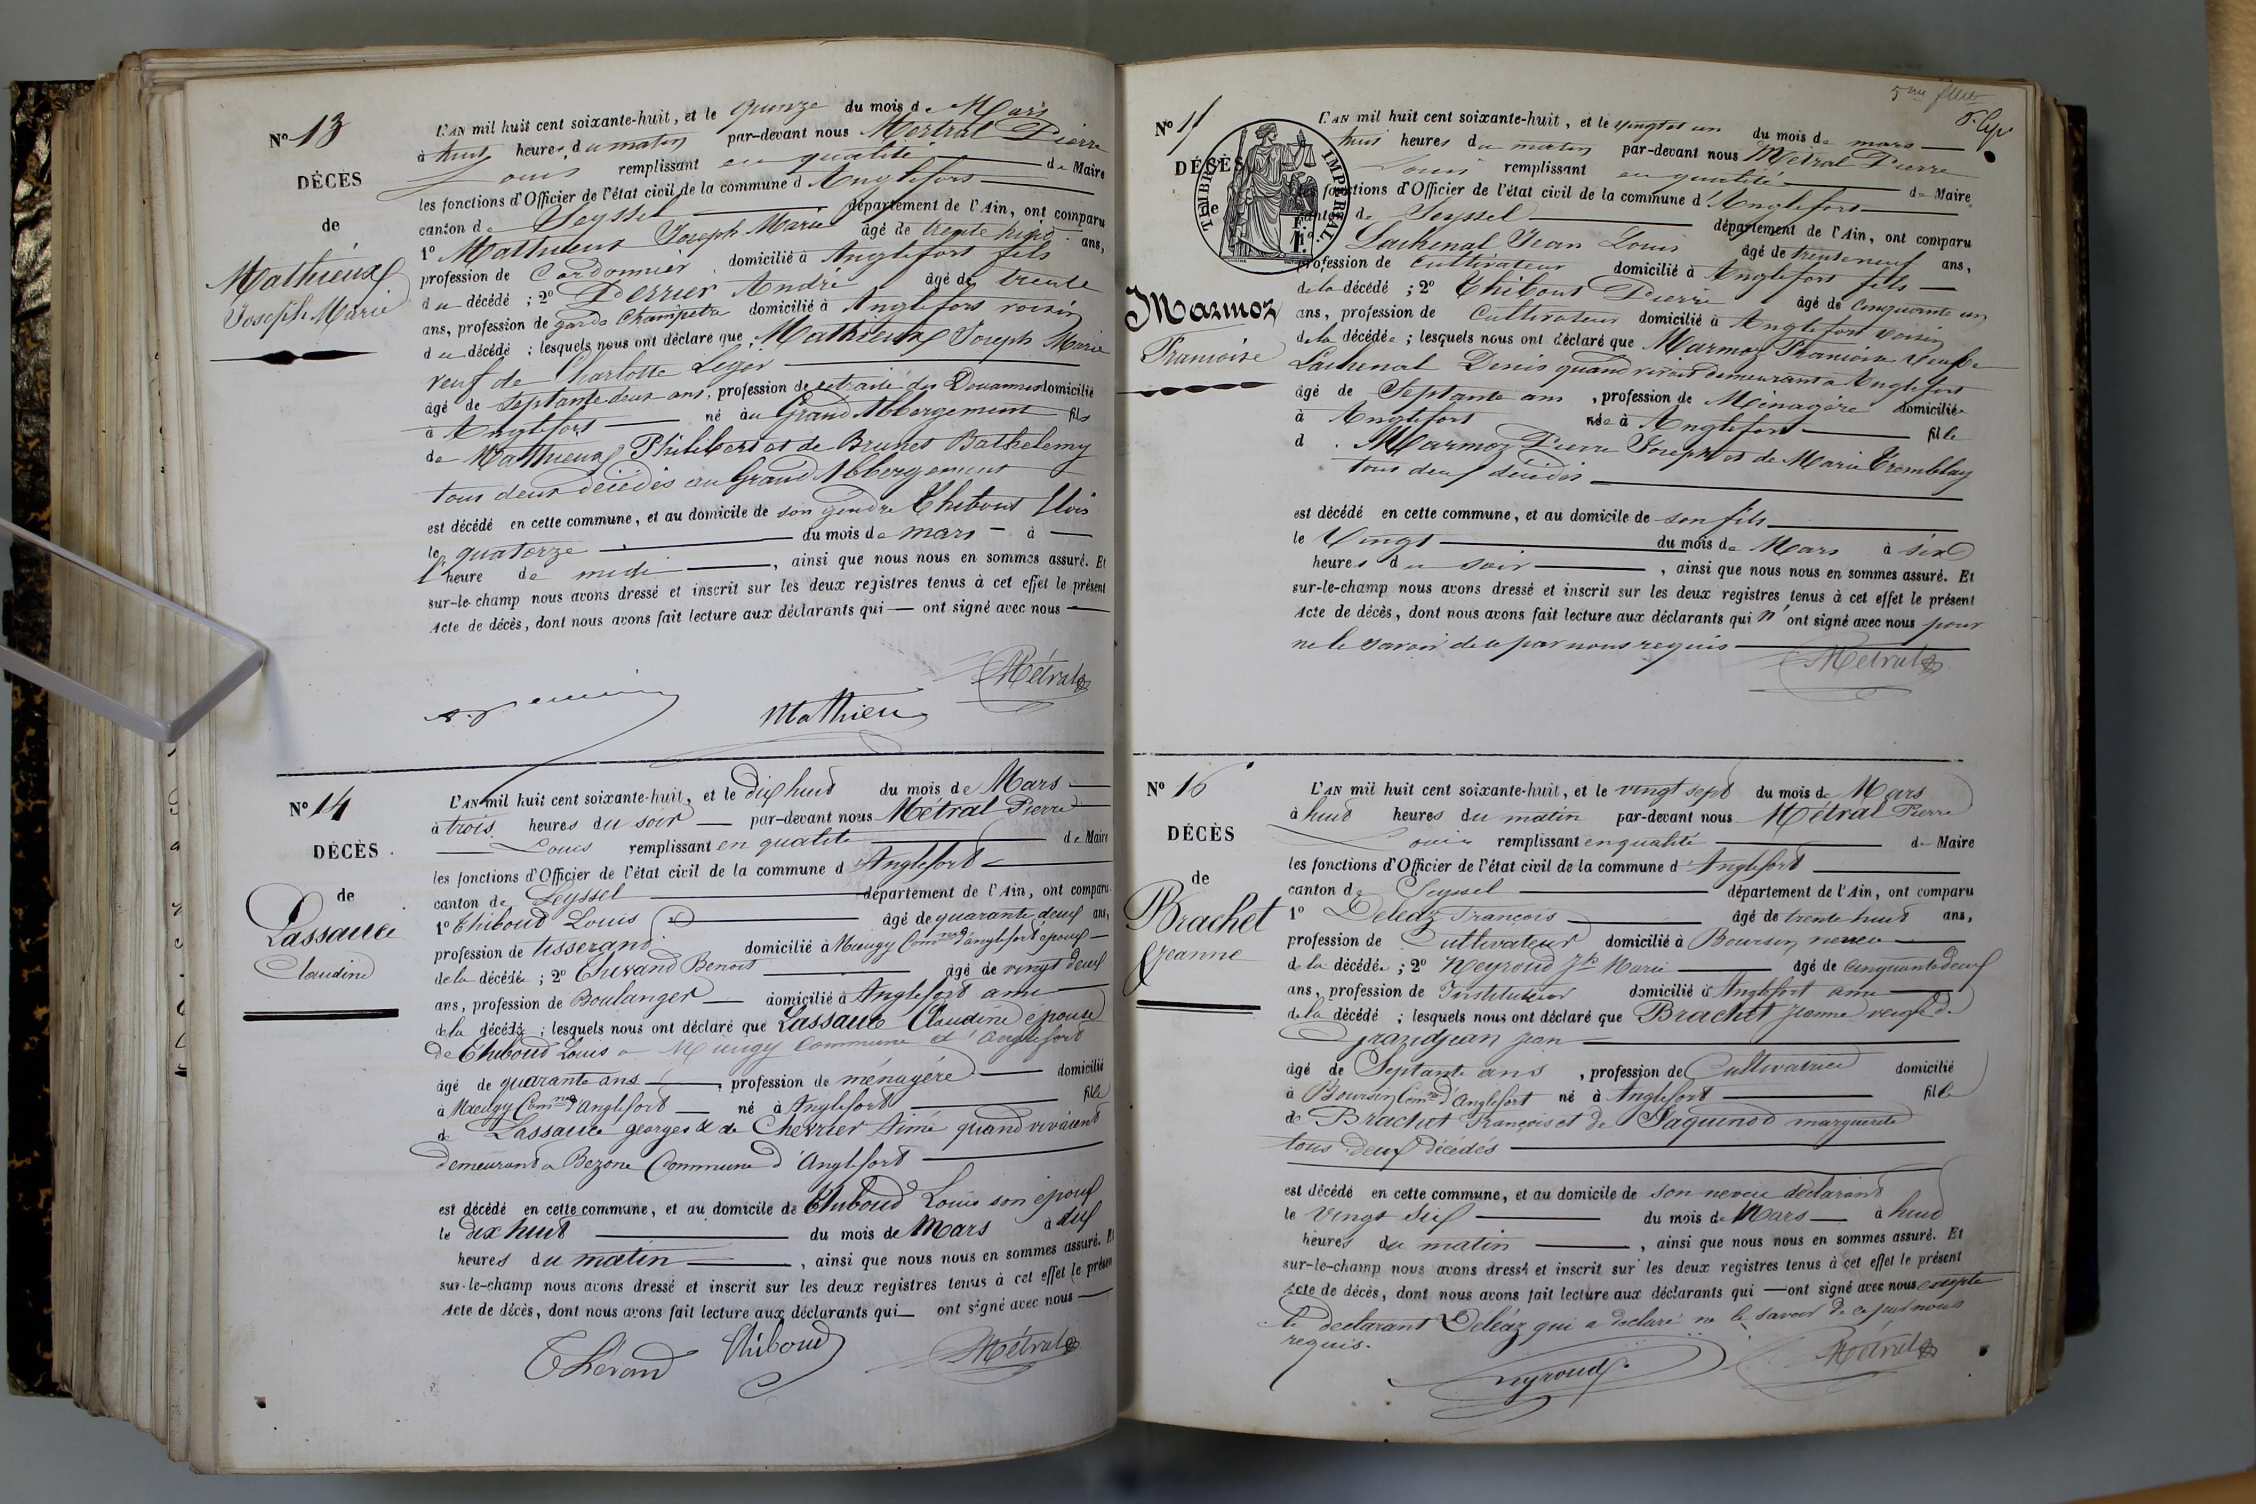 N° 13
DÉCÈS
de
Mathieux
Joseph Marie
L'AN mil huit cent soixante-huit, et le quinze du mois de Mars
à huit heures du matin par-devant nous Métral Pierre
Louis remplissant en qualité de Maire
les fonctions d'Officier de l'état civil de la commune d'Anglefort
canton de Seyssel département de l'Ain, ont comparu
1° Mathieux Joseph Marie âgé de trente ans,
profession de Cordonnier domicilié à Anglefort fils
du décédé ; 2° Perrier André âgé de trente
ans, profession de garde Champêtre domicilié à Anglefort voisin
du décédé ; lesquels nous ont déclaré que Mathieux Joseph Marie
veuf de Charlotte Léger
âgé de septante deux ans, profession de retraité des Douannes domicilié
à Anglefort né au Grand Abbergement fils
de Mathieux Philibert et de Brunet Bathelemy
tous deux décédés au Grand Abbergement
est décédé en cette commune, et au domicile de son gendre Thibout
le quatorze du mois de mars à
l'heure de midi , ainsi que nous nous en sommes assuré. Et
sur-le-champ nous avons dressé et inscrit sur les deux registres tenus à cet effet le présent
Acte de décès, dont nous avons fait lecture aux déclarants qui ont signé avec nous
Métral
Mathieu
N° 14
DÉCÈS
de
Lassauce
Claudine
L'AN mil huit cent soixante-huit, et le dix huit du mois de Mars
à trois heures du soir par-devant nous Métral Pierre
Louis remplissant en qualité de Maire
les fonctions d'Officier de l'état civil de la commune d'Anglefort
canton de Seyssel département de l'Ain, ont comparu
1° Thiboud Louis âgé de quarante deux ans,
profession de tisserand domicilié à Mieugy Comne d'anglefort époux
de la décédée ; 2° Thevand Benoit âgé de vingt deux
ans, profession de Boulanger domicilié à Anglefort ami
de la décédé ; lesquels nous ont déclaré que Lassauce Claudine épouse
de Thiboud Louis a Mieugy Commune d'anglefort
âgé de quarante ans , profession de ménagère domicilié
à Mieugy Comne d'Anglefort né à Anglefort fille
de Lassauce georges & de Chevrier Aimé quand vivaient
demeurant a Bezone Commune d'Anglefort
est décédé en cette commune, et au domicile de Thiboud Louis son époux
le dix huit du mois de Mars à dix
heures du matin , ainsi que nous nous en sommes assuré. Et
sur-le-champ nous avons dressé et inscrit sur les deux registres tenus à cet effet le présent
Acte de décès, dont nous avons fait lecture aux déclarants qui ont signé avec nous
Thevand Thiboud Métral
5me
N° 15
DÉCÈS
de
TIMBRE IMPÉRIAL
Marmoz
Francoise
L'AN mil huit cent soixante-huit, et le vingt et un du mois de mars
à huit heures du matin par-devant nous Métral Pierre
Louis remplissant en qualité de Maire
les fonctions d'Officier de l'état civil de la commune d'Anglefort
canton de Seyssel département de l'Ain, ont comparu
1° Lachenal Jean Louis âgé de trente neuf ans,
profession de cultivateur domicilié à Anglefort fils
de la décédé ; 2° Thibout Pierre âgé de cinquante un
ans, profession de Cultivateur domicilié à Anglefort voisin
de la décédée ; lesquels nous ont déclaré que Marmoz Francoise veuve
Lachenal Denis quand vivait demeurant a Anglefort
âgé de Septante ans , profession de Ménagère domiciliée
à Anglefort née à Anglefort fille
d Marmoz Pierre Joseph et de Marie Tremblay
tous deux décédés
est décédé en cette commune, et au domicile de son fils
le Vingt du mois de Mars à six
heures du soir , ainsi que nous nous en sommes assuré. Et
sur-le-champ nous avons dressé et inscrit sur les deux registres tenus à cet effet le présent
Acte de décès, dont nous avons fait lecture aux déclarants qui n'ont signé avec nous pour
ne le savoir de ce par nous requis
Métral
N° 16
DÉCÈS
de
Brachet
Jeanne
L'AN mil huit cent soixante-huit, et le vingt sept du mois de Mars
à huit heures du matin par-devant nous Métral Pierre
Louis remplissant en qualité de Maire
les fonctions d'Officier de l'état civil de la commune d'Anglefort
canton de Seyssel département de l'Ain, ont comparu
1° Deléaz François âgé de trente huit ans,
profession de Cultivateur domicilié à Boursin neveu
de la décédée ; 2° Neyroud Jh Marie âgé de cinquante deux
ans, profession de Instituteur domicilié à Anglefort ami
de la décédé ; lesquels nous ont déclaré que Brachet Jeanne veuve de
Grandjean Jean
âgé de Septante ans , profession de Cultivatrice domicilié
à Boursin Comne d'Anglefort né à Anglefort fille
de Brachet François et de Jaquenod marguerite
tous deux décédés
est décédé en cette commune, et au domicile de son neveu déclarant
le vingt six du mois de Mars à huit
heures du matin , ainsi que nous nous en sommes assuré. Et
sur-le-champ nous avons dressé et inscrit sur les deux registres tenus à cet effet le présent
Acte de décès, dont nous avons fait lecture aux déclarants qui ont signé avec nous excepté
le déclarant Deléaz qui a déclaré ne le savoir de ce par nous
requis.
Neyroud Métral